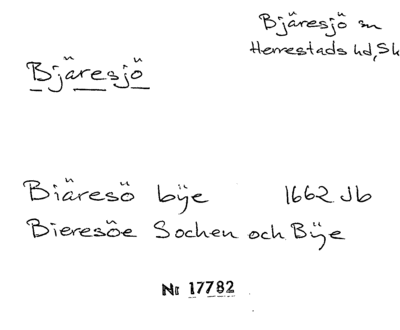 Bjäresjö sn
Herrestads hd, Sk
Bjäresjö
Biäresö bÿe 1662 Jb
Bieresöe Sochen och Bÿe
Nr 17782